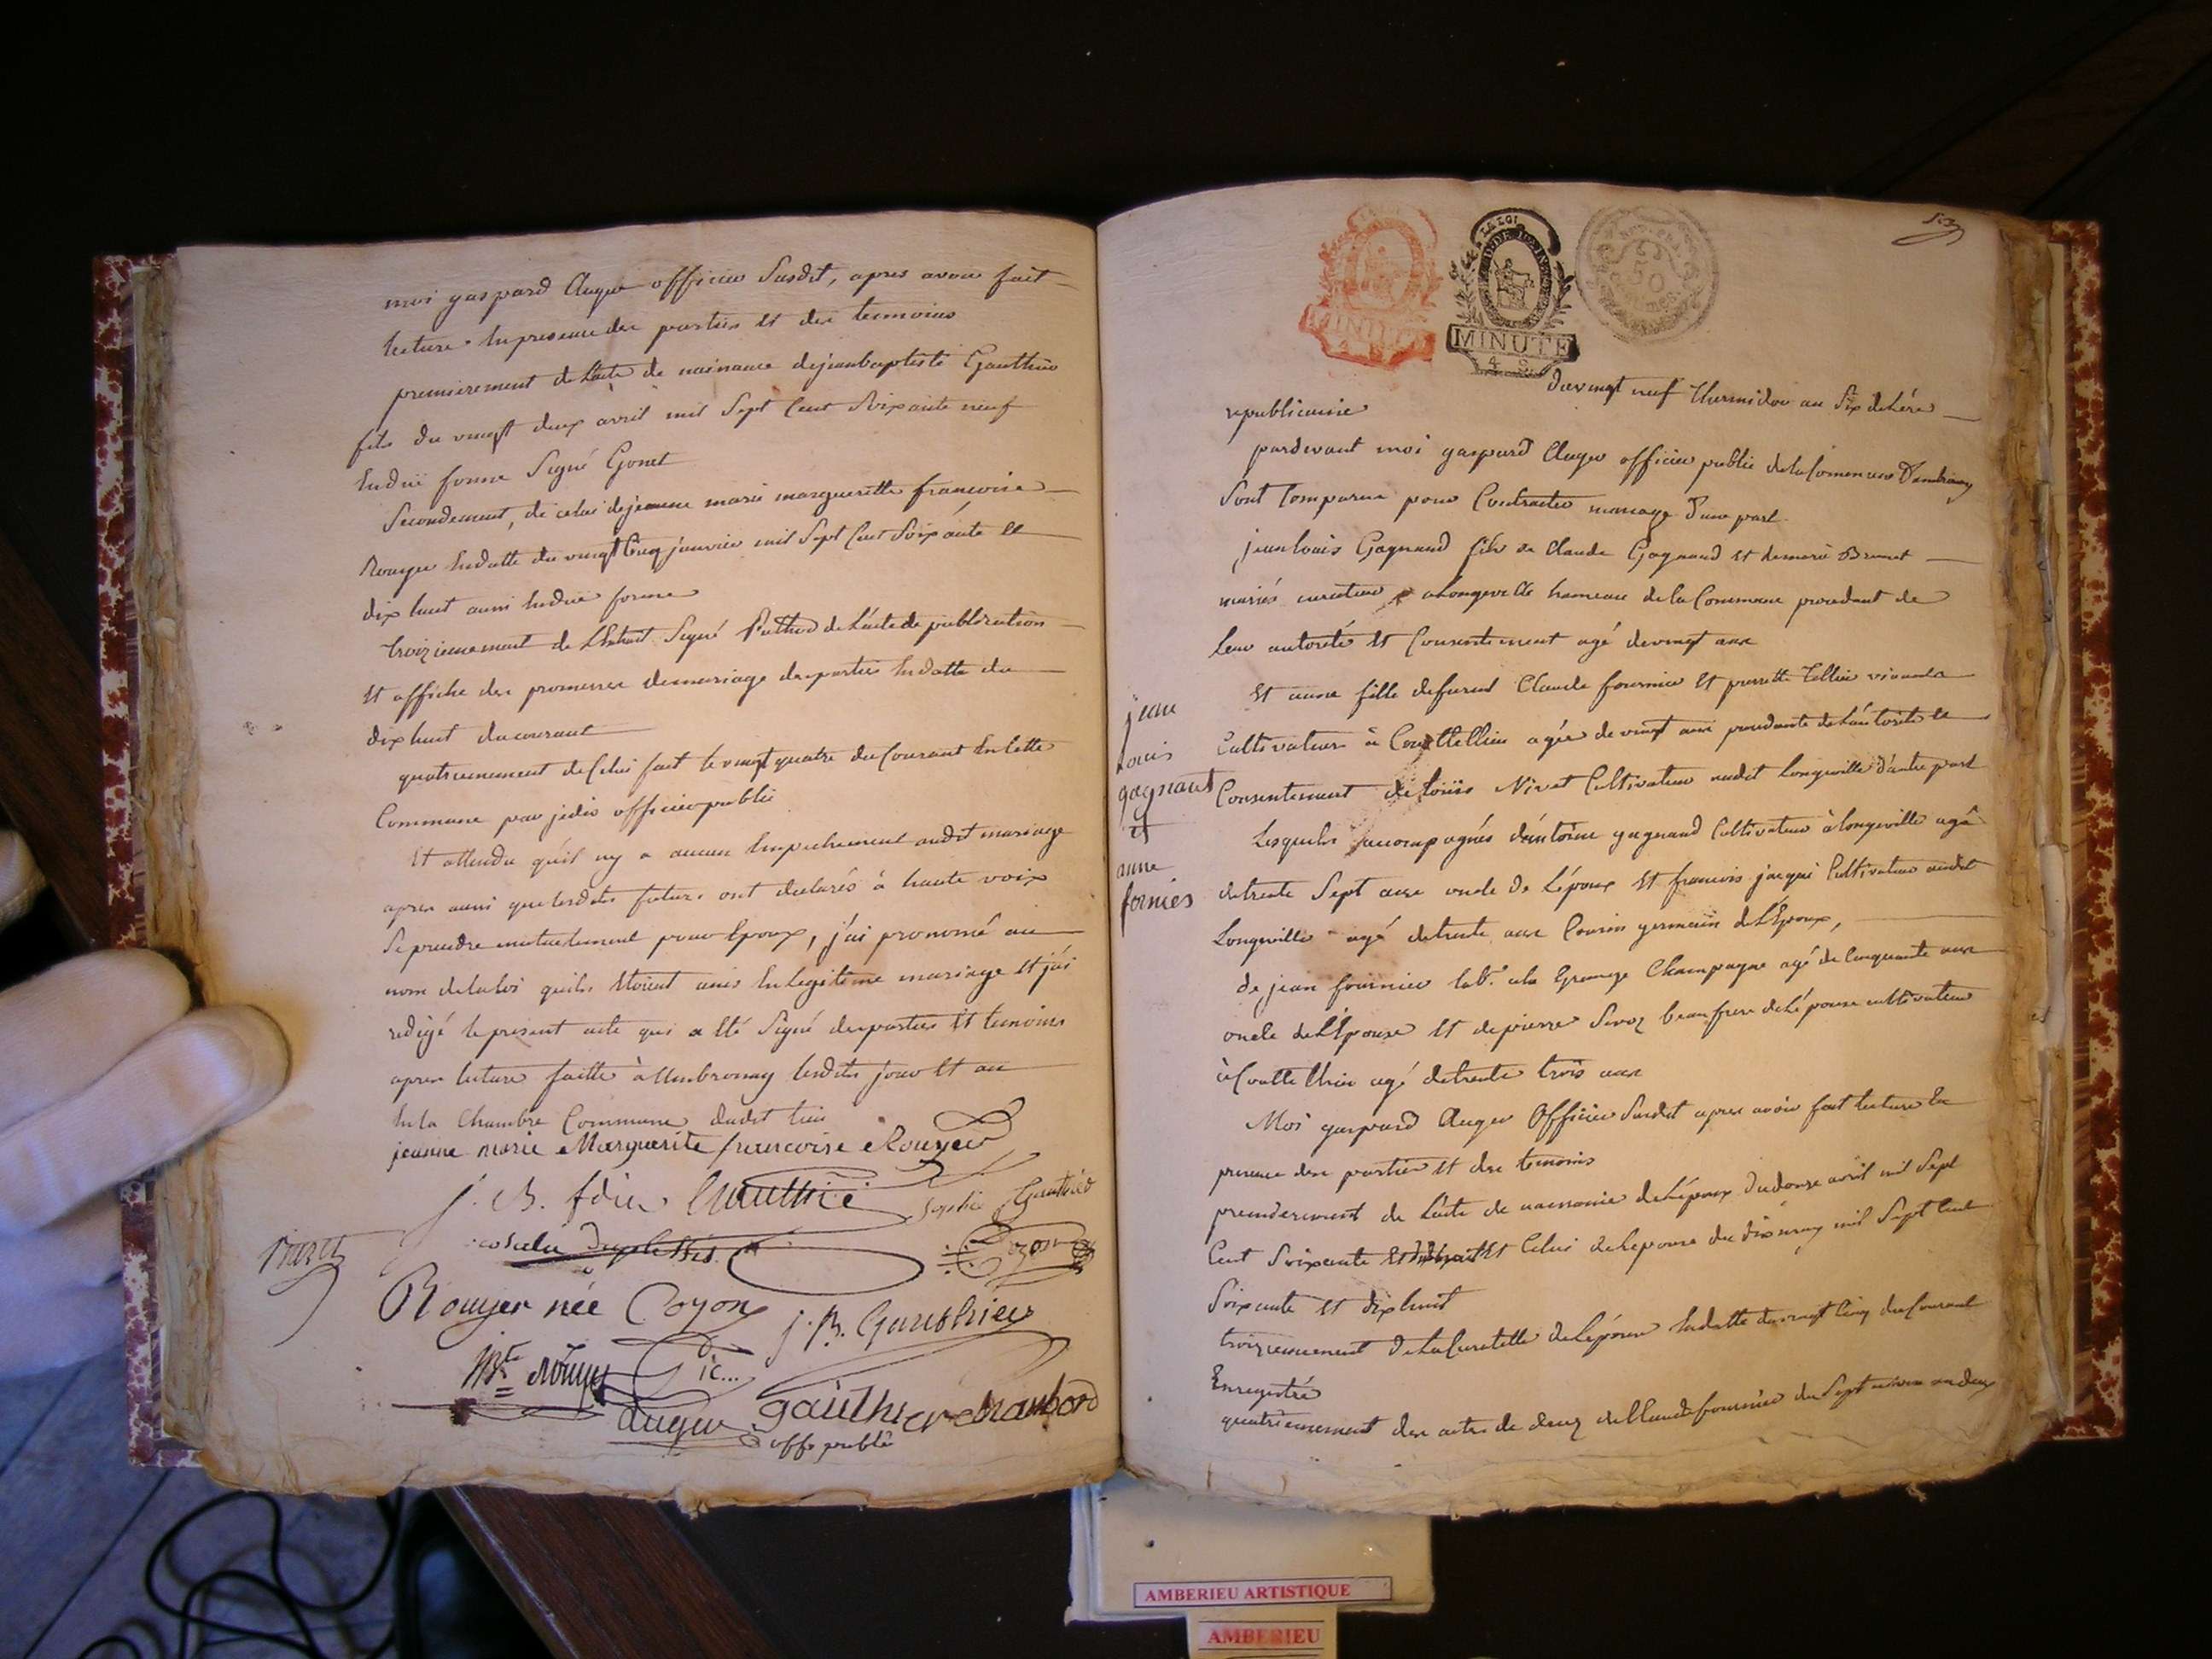 moi gaspard Auger officier Susdit, apres avoir fait
lecture En presence des parties Et des temoins
premierement de L'acte de naissance de jean baptiste Gauthier
fils du vingt deux avril mil Sept Cent Soixante neuf
En duë forme Signé Gonet
Secondement, de celui de jeanne marie margueritte francoise
Rouyer En datte du vingt Cinq janvier mil Sept Cent Soixante et
dix huit aussi En duë forme
troiziemement de L'Extrait Signé de L'acte de publication
Et affiche des promesses de mariage des parties En datte du
dix huit du courant
quatriemement de Celui fait le vingt quatre du Courant En Cette
Commune par jedit officier public
Et attendu qu'il ny a aucun Empechement audit mariage
apres aussi que lesdits futurs ont declarés à haute voix
Se prendre mutuellement pour Epoux, j'ai prononcé au
nom de la loi quils Etoient unis En legitime mariage Et j'ai
redigé le present acte qui a Eté Signé des parties Et temoins
apres lecture faitte à Ambronay lesdits jour Et an
En la Chambre Commune dudit lieu
jeanne marie Marguerite francoise Rouyer
j. B. Gauthié
Sophie Gauthier
duplessis
Cozon
Rouyer née Cozon
j. B. Gauthier
Rouyer
Auger
gauthier chambord
off. public
MINUTE
LA LOI
MINUTE
4 S.
50
Du vingt neuf thermidor an Six de L'ére
republicaine
pardevant moi gaspard Auger officier public de la Commune D'ambronay
Sont Comparus pour Contracter mariage D'une part
jean louis Gagnaud fils de Claude Gagnaud Et de marie Brunet
mariés a Longeville hameau de la Commune procedant de
leur autorité Et Consentement agé de vingt ans
Et anne fille de furent Claude fournier Et pierrette Tellier vivants
Cultivateurs à agée de vingt ans procedante de L'autorité et
Consentement de Louis Nivet Cultivateur audit Longeville d'autre part
Lesquels accompagnés d'antoine gagnaud Cultivateur à longeville agé
de trente Sept ans oncle de L'époux Et francois jacqui Cultivateur audit
Longeville agé de trente ans Cousin germain de L'Epoux,
de jean fournier lab.r a la Grange Champagne agé de Cinquante ans
oncle de L'Epouse Et de pierre Savoz beau frere de L'épouse cultivateur
à agé de trente trois ans
Moi gaspard Auger Officier Susdit apres avoir fait lecture En
presence des parties Et des temoins
premierement de L'acte de naissance de L'époux du douze avril mil Sept
Cent Soixante Et dix huit Et Celui de L'epouse du dix may mil Sept Cent
Soixante Et dix huit
troiziemement De la Curatelle de L'épouse En datte du vingt Cinq du Courant
Enregistré
quatriemement des actes de deces de Claude fournier du Sept an deux
jean
Louis
gagnaut
et
anne
fornies
AMBERIEU ARTISTIQUE
AMBERIEU